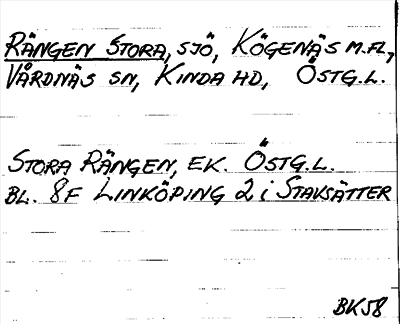 RÄNGEN STORA, SJÖ, KÖGENÄS M.FL.,
VÅRDNÄS SN, KINDA HD, ÖSTG.L.
STORA RÄNGEN, EK. ÖSTG.L.
BL. 8F LINKÖPING 2 i STAVSÄTTER
BK58